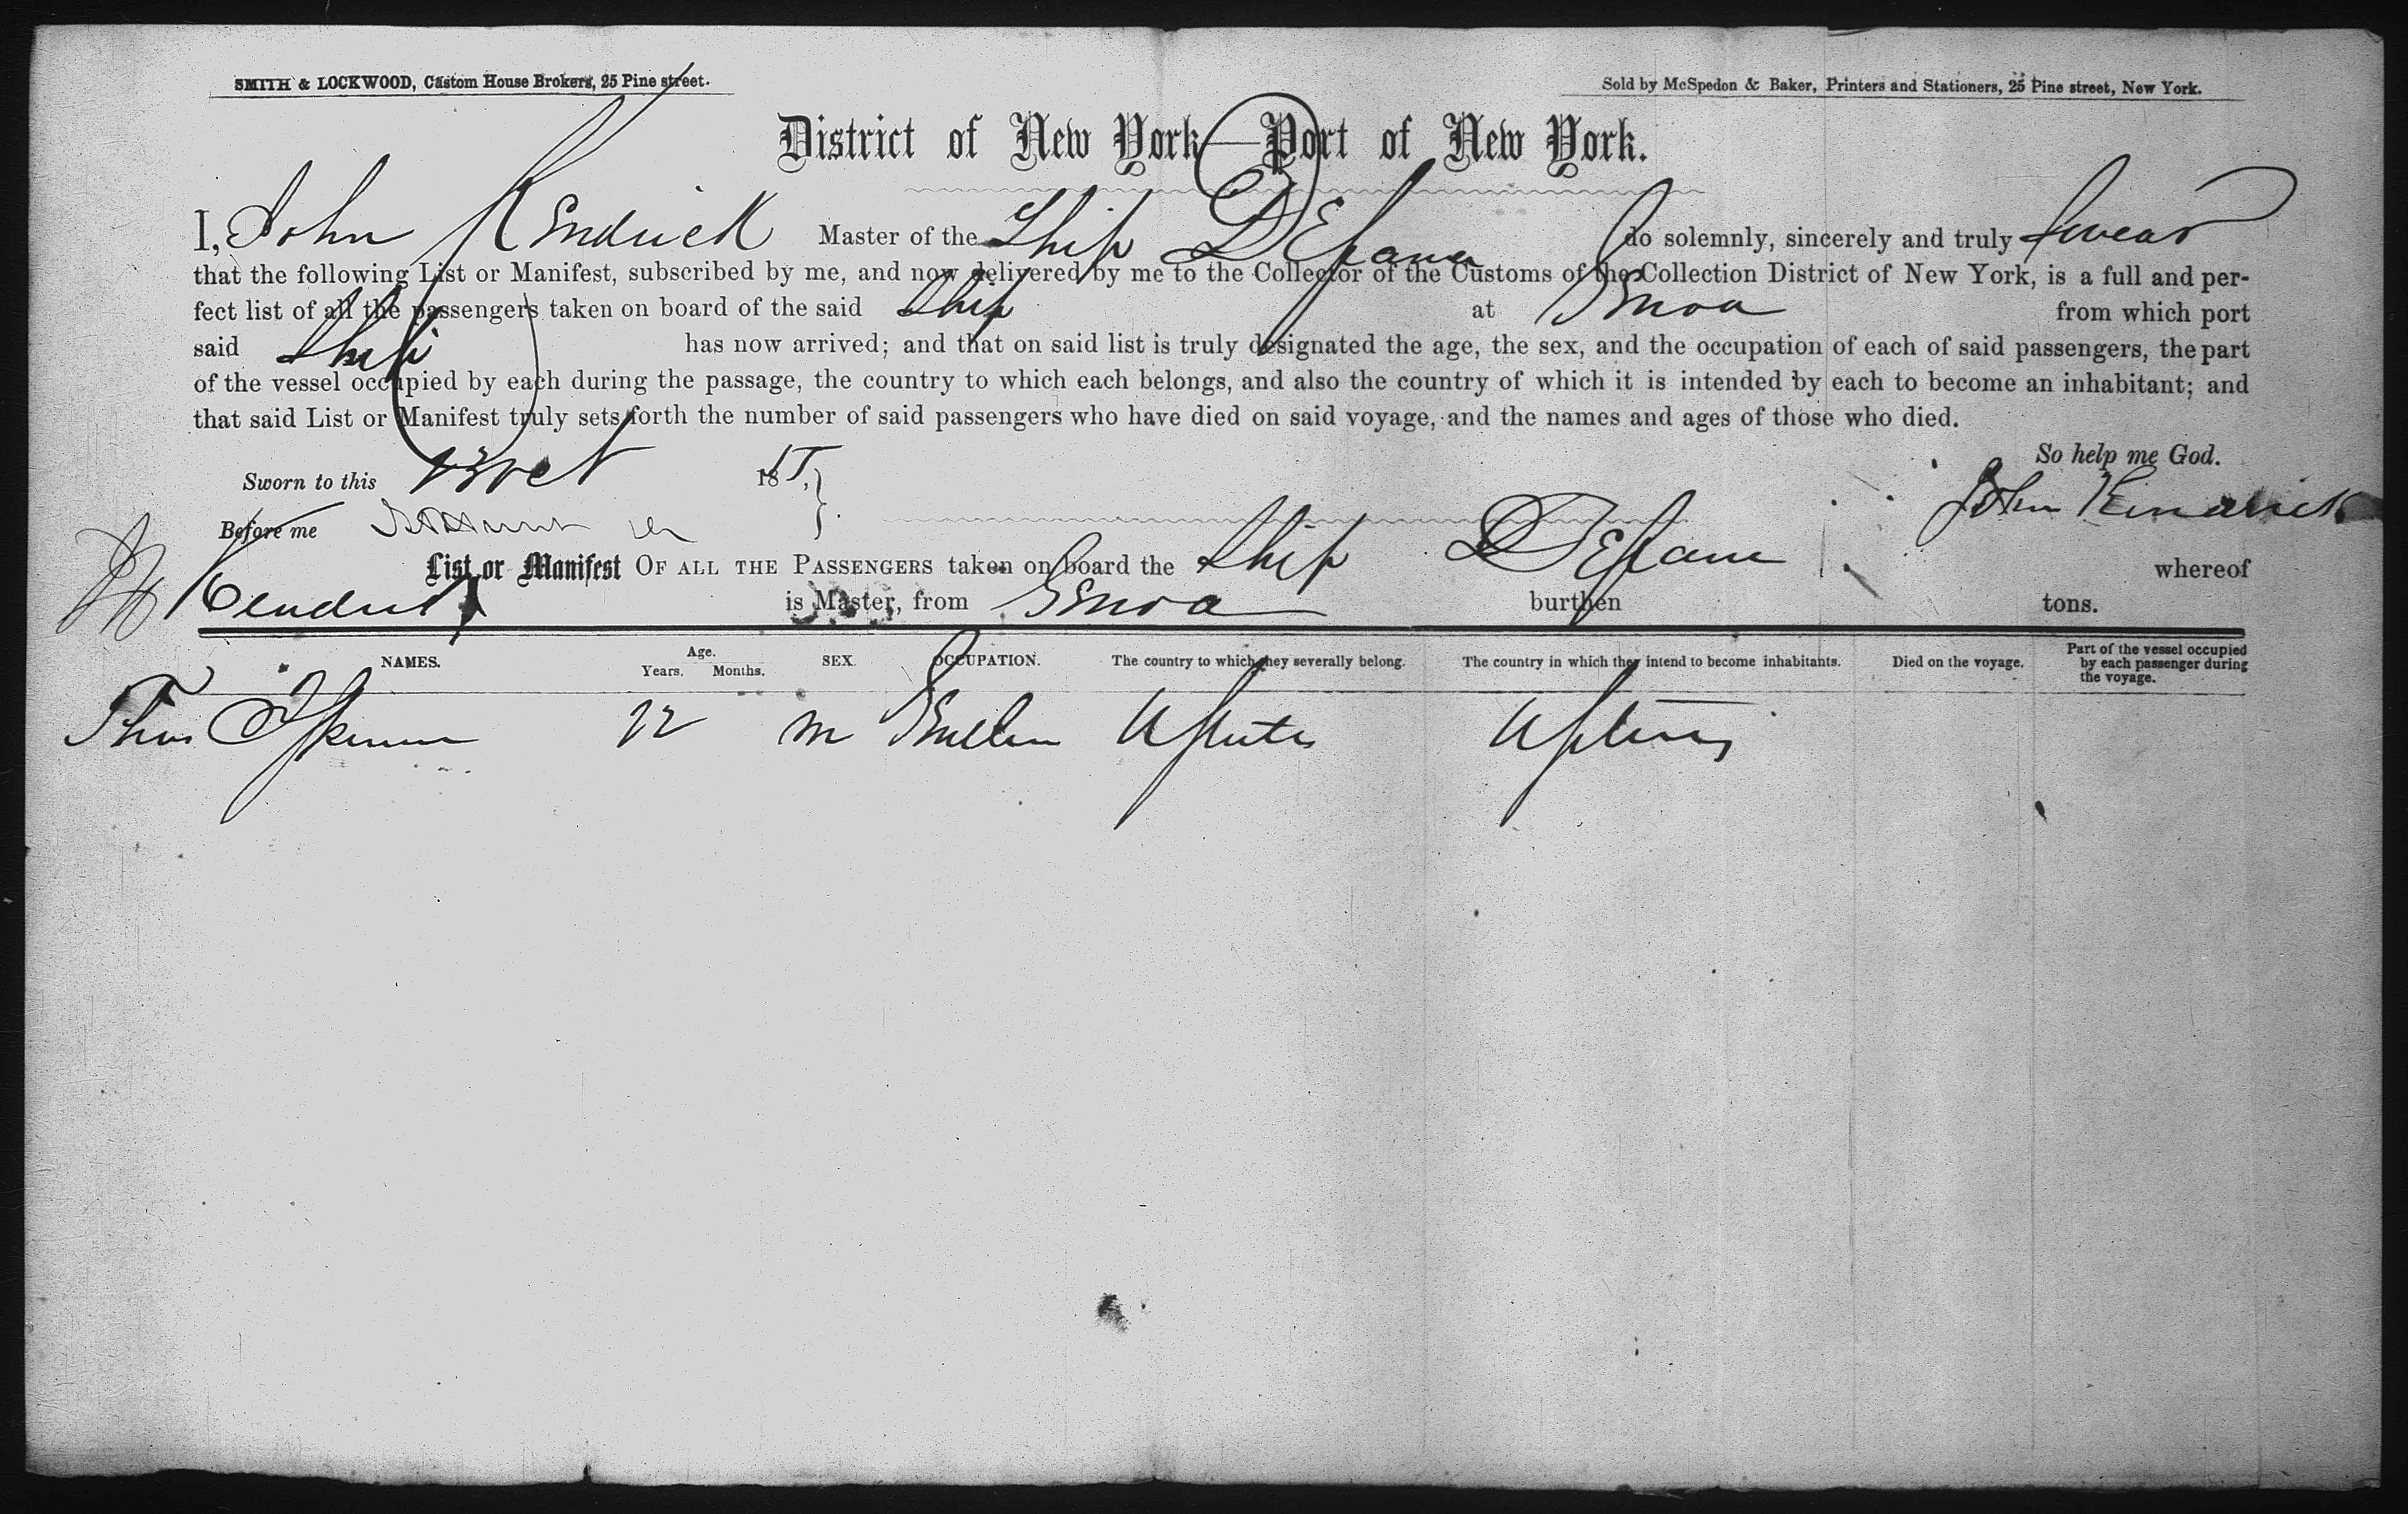 SMITH & LOCKWOOD, Custom House Brokers, 25 Pine street.
Sold by McSpedon & Baker, Printers and Stationers, 25 Pine street, New York.
District of New York—Port of New York.
I, John Kendrick Master of the Ship do solemnly, sincerely and truly swear
that the following List or Manifest, subscribed by me, and now delivered by me to the Collector of the Customs of the Collection District of New York, is a full and per-
fect list of all the passengers taken on board of the said Ship at Genoa from which port
said Ship has now arrived; and that on said list is truly designated the age, the sex, and the occupation of each of said passengers, the part
of the vessel occupied by each during the passage, the country to which each belongs, and also the country of which it is intended by each to become an inhabitant; and
that said List or Manifest truly sets forth the number of said passengers who have died on said voyage, and the names and ages of those who died.
So help me God.
Sworn to this 18
John Kendrick
Before me
List or Manifest OF ALL THE PASSENGERS taken on board the Ship whereof
Kendrick is Master, from Genoa burthen tons.
NAMES. Age. Years. Months. SEX. OCCUPATION. The country to which they severally belong. The country in which they intend to become inhabitants. Died on the voyage. Part of the vessel occupied by each passenger during the voyage.
Thos 22 m U States U States